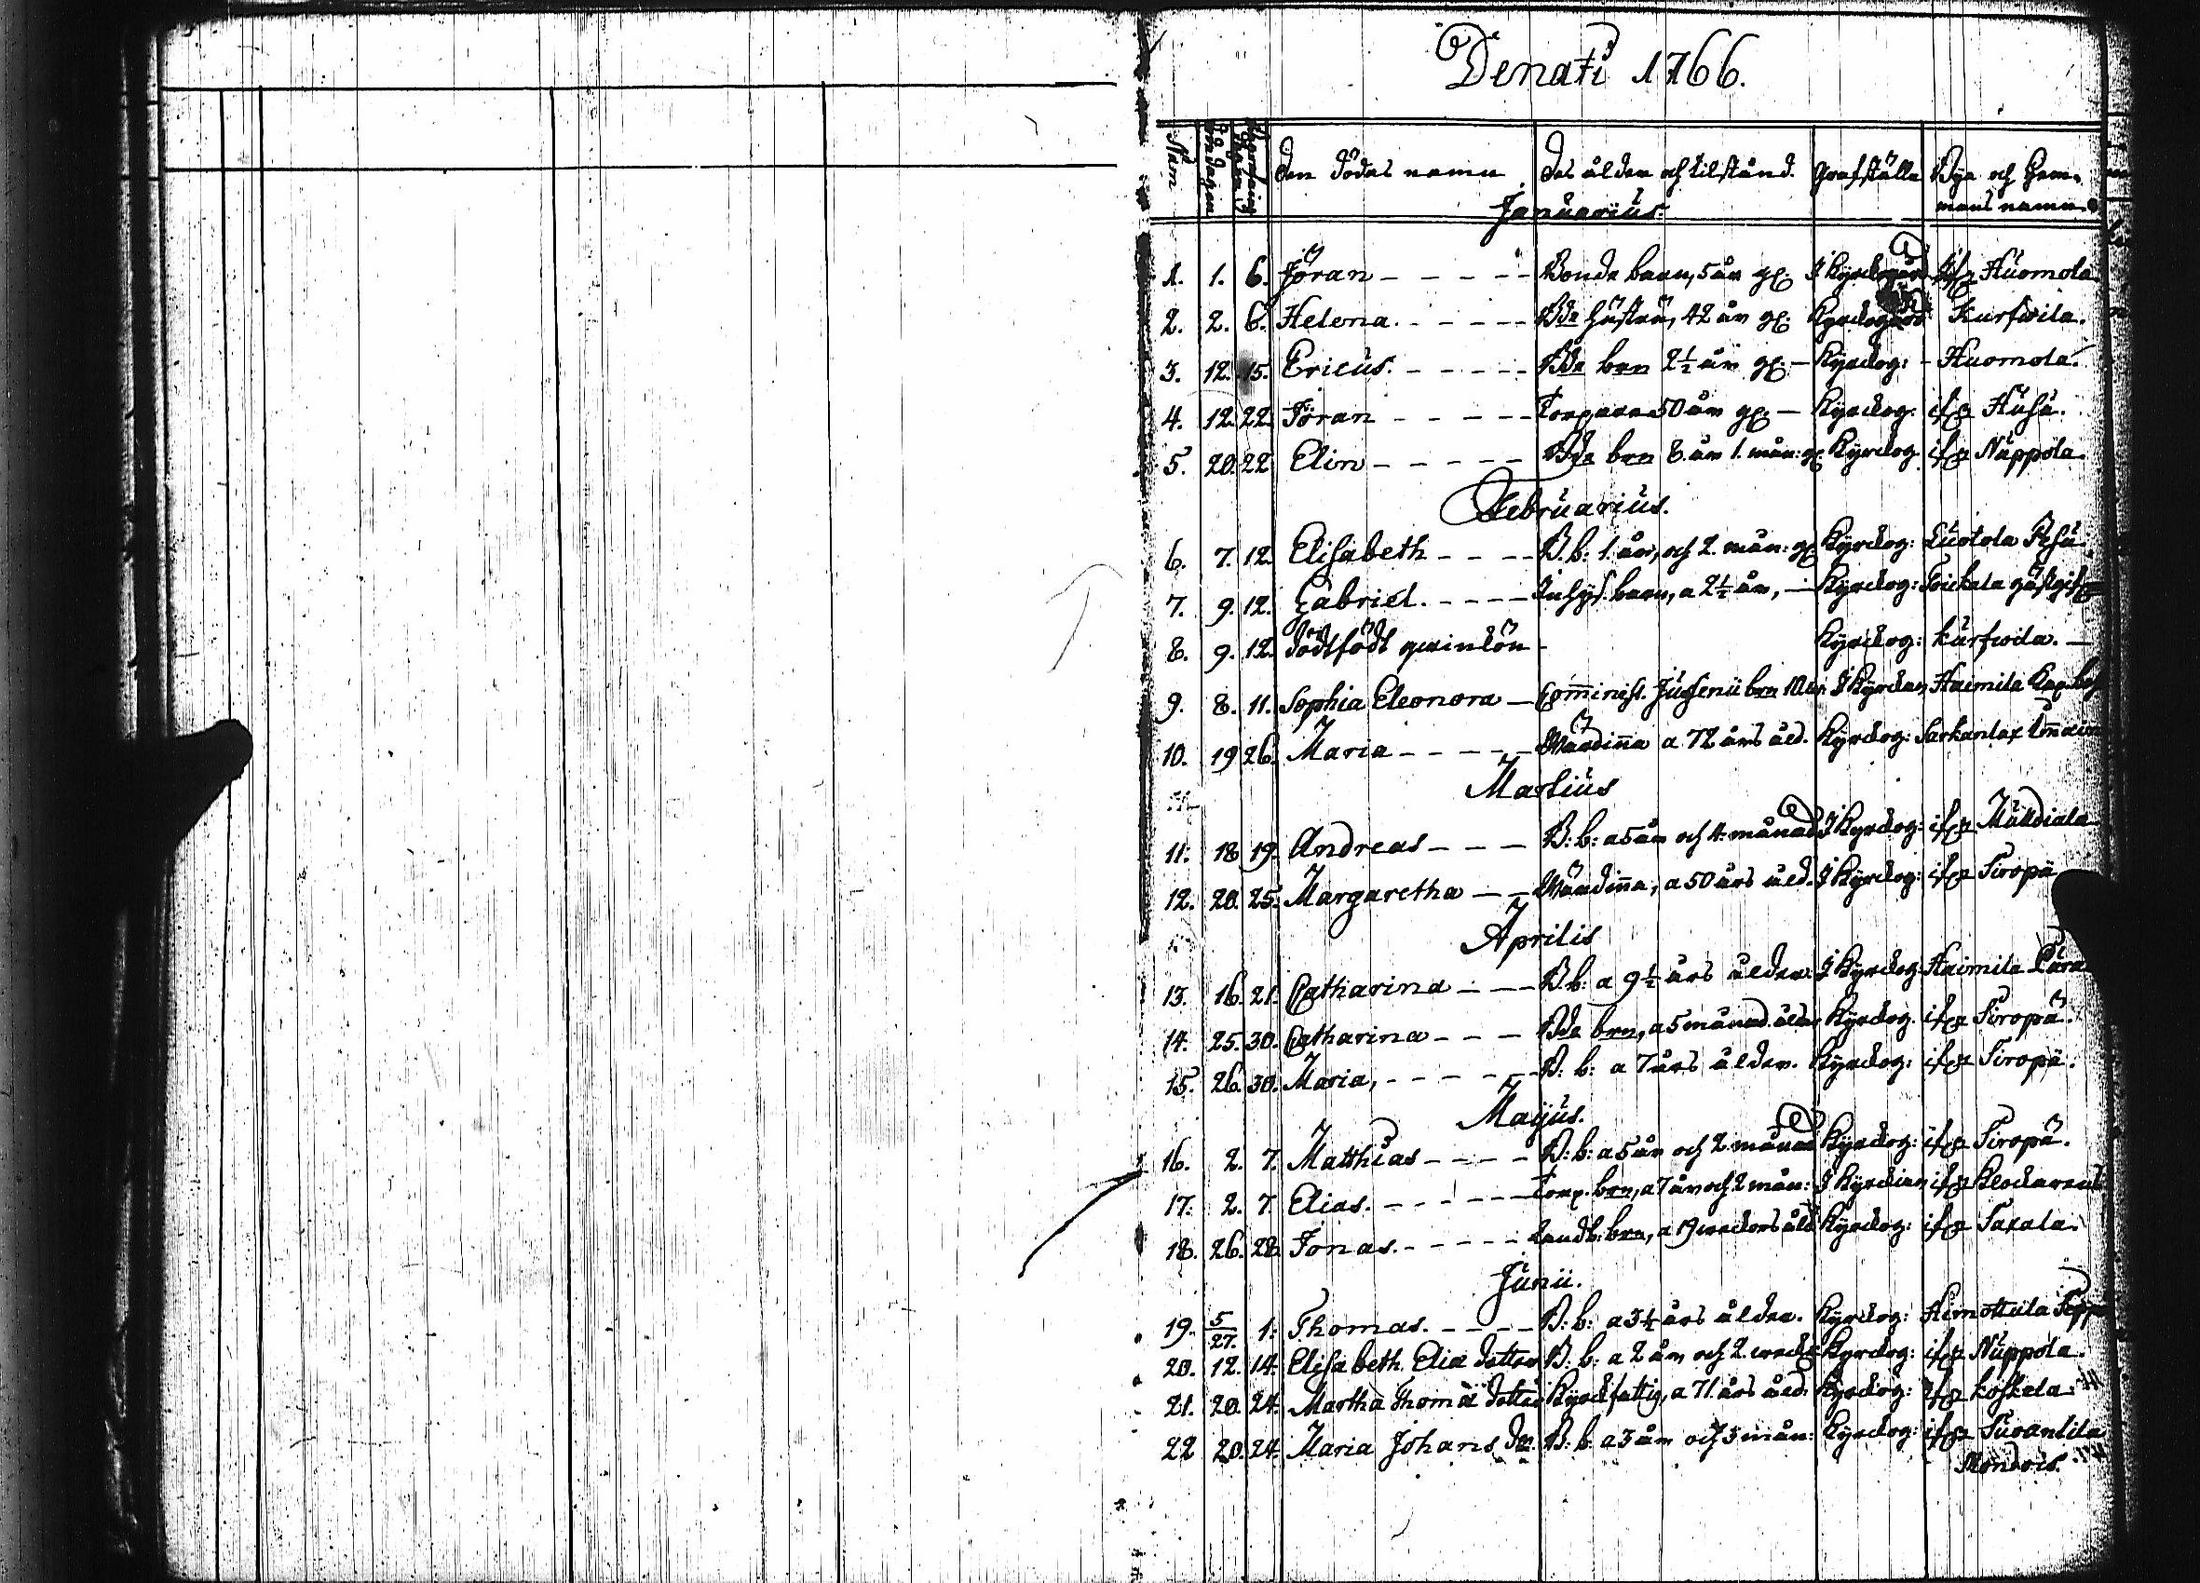 Denati 1766.
Num
den dödas namn des ålder och tilstånd. grafställe Bya och Hem-
mans namn.
Januarius.
1. 1. 6. Jöran - - - - - Bonde barn, 5 år gl. I Kyrckogård ifr. Huomola
2. 2. 6. Helena. - - - - - Bde hustru, 42 år gl. Kyrckogård Kurfwila.
3. 12. 15. Ericus. - - - - - Bde brn 2½ år gl. - Kyrckog: - Huomola.
4. 12. 22. Jöran - - - - - Torpare 50 år gl. - Kyrckog: ifr. Husu.
5. 20. 22 Elin - - - - - Bde brn 8. år 1. mån: gl. Kyrckog. ifr. Nuppola.
Februarius.
6. 7. 12. Elisabeth - - - - B. b: 1. år, och 2. mån: gl. Kyrckog: Luotola
7. 9. 12. Gabriel. - - - - Inhys. barn, a 2½ år, - Kyrckog:
8. 9. 12. dödfödt qwinkön - Kyrckog: kurfwila. -
9. 8. 11. Sophia Eleonora - Comminist. brn I Kyrckan Haimila
10. 19 26. Maria - - - - - Wärdinna a 72 års åld. Kyrckog: Sarkanlax
Martius
11. 18 19. Andreas - - - B: b: a 5 år och 4. månad I Kyrckog: ifr.
12. 20. 25. Margaretha - - Wärdinna, a 50 års åld. I Kyrckog: ifr. Siropä
Aprilis
13. 16. 21. Catharina - - - B. b: a 9½ års ålder. I Kyrckog: Haimila
14. 25. 30. Catharina - - - Bde brn, a 5 månad. ålder Kyrckog. ifr. Siropä.
15. 26. 30. Maria, - - - - - B: b: a 7 års ålder. Kyrckog: ifr. Siropä.
Majus.
16. 2. 7. Matthias - - - - B: b: a 5 år och 2. månad Kyrckog: ifr. Siropä.
17. 2. 7. Elias. - - - - - Torp. brn, a 7 år och 2 mån: I Kyrckian ifr.
18. 26. 28. Jonas. - - - - - Landb: brn, a 19 weckors åld Kyrckog: ifr. Saxala.
Junii.
19. 5/27. 1. Thomas. - - - - B: b: a 3¼ års ålder. Kyrckog: Himottula
20. 12. 14. Elisabeth Eliæ dotter B: b: a 2 år och 2. weck Kyrckog: ifr. Nuppola.
21. 20. 24. Martha Thomæ dotter Kyrckfattig, a 71. års åld. Kyrckog: ifr. koskela.
22 20. 24. Maria Johans dr. B: b. a 3 år och 3 mån: Kyrckog: ifr. Suwantila